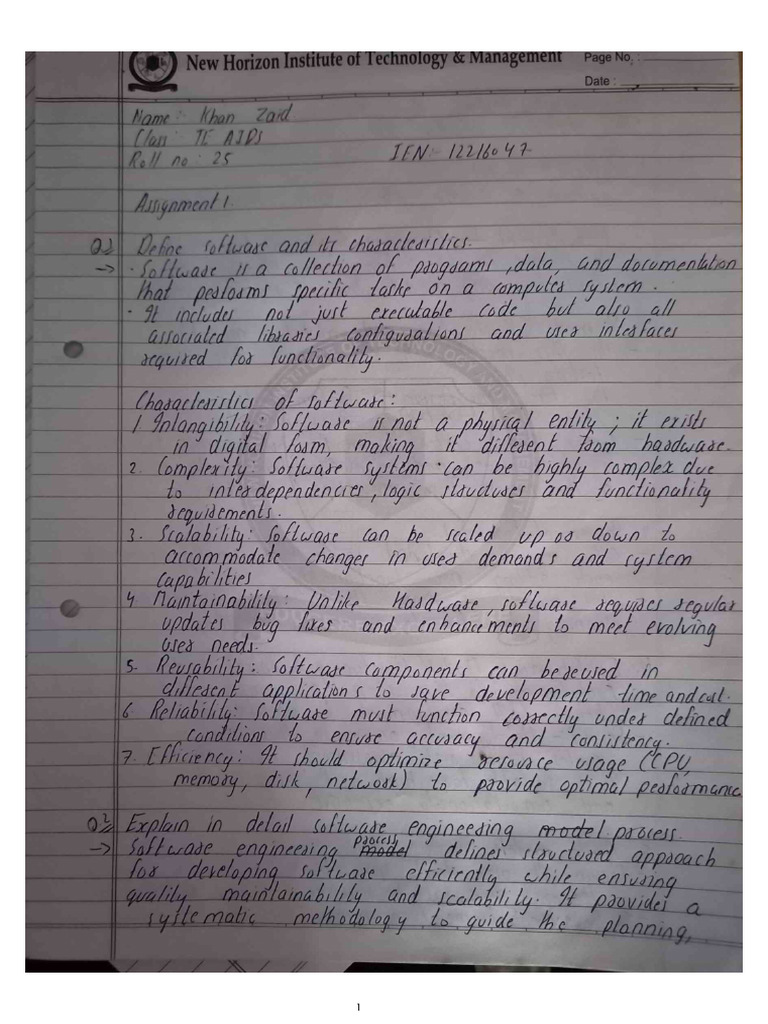 New Horizon Institute of Technology & Management
Page No. :
Date :
Name: Khan Zaid
Class: TE AIDS
Roll no : 25
IEN:- 12216047
Assignment 1.
Q1) Define software and its characteristics.
→ · Software is a collection of programs, data, and documentation
that performs specific tasks on a computer system.
· It includes not just executable code but also all
associated libraries configurations and user interfaces
required for functionality.
Characteristics of software:
1. Intangibility: Software is not a physical entity ; it exists
in digital form, making it different from hardware.
2. Complexity: Software systems can be highly complex due
to interdependencies, logic structures and functionality
requirements.
3. Scalability: Software can be scaled up or down to
accommodate changes in user demands and system
capabilities
4 Maintainability: Unlike Hardware, software requires regular
updates bug fixes and enhancements to meet evolving
user needs.
5. Reusability: Software components can be reused in
different applications to save development time and cut.
6 Reliability: Software must function correctly under defined
conditions to ensure accuracy and consistency.
7. Efficiency: It should optimize resource usage (CPU,
memory, disk, network) to provide optimal performance
Q2) Explain in detail software engineering model process.
→ Software engineering process model defines structured approach
for developing software efficiently while ensuring
quality maintainability and scalability. It provides a
systematic methodology to guide the planning,
1